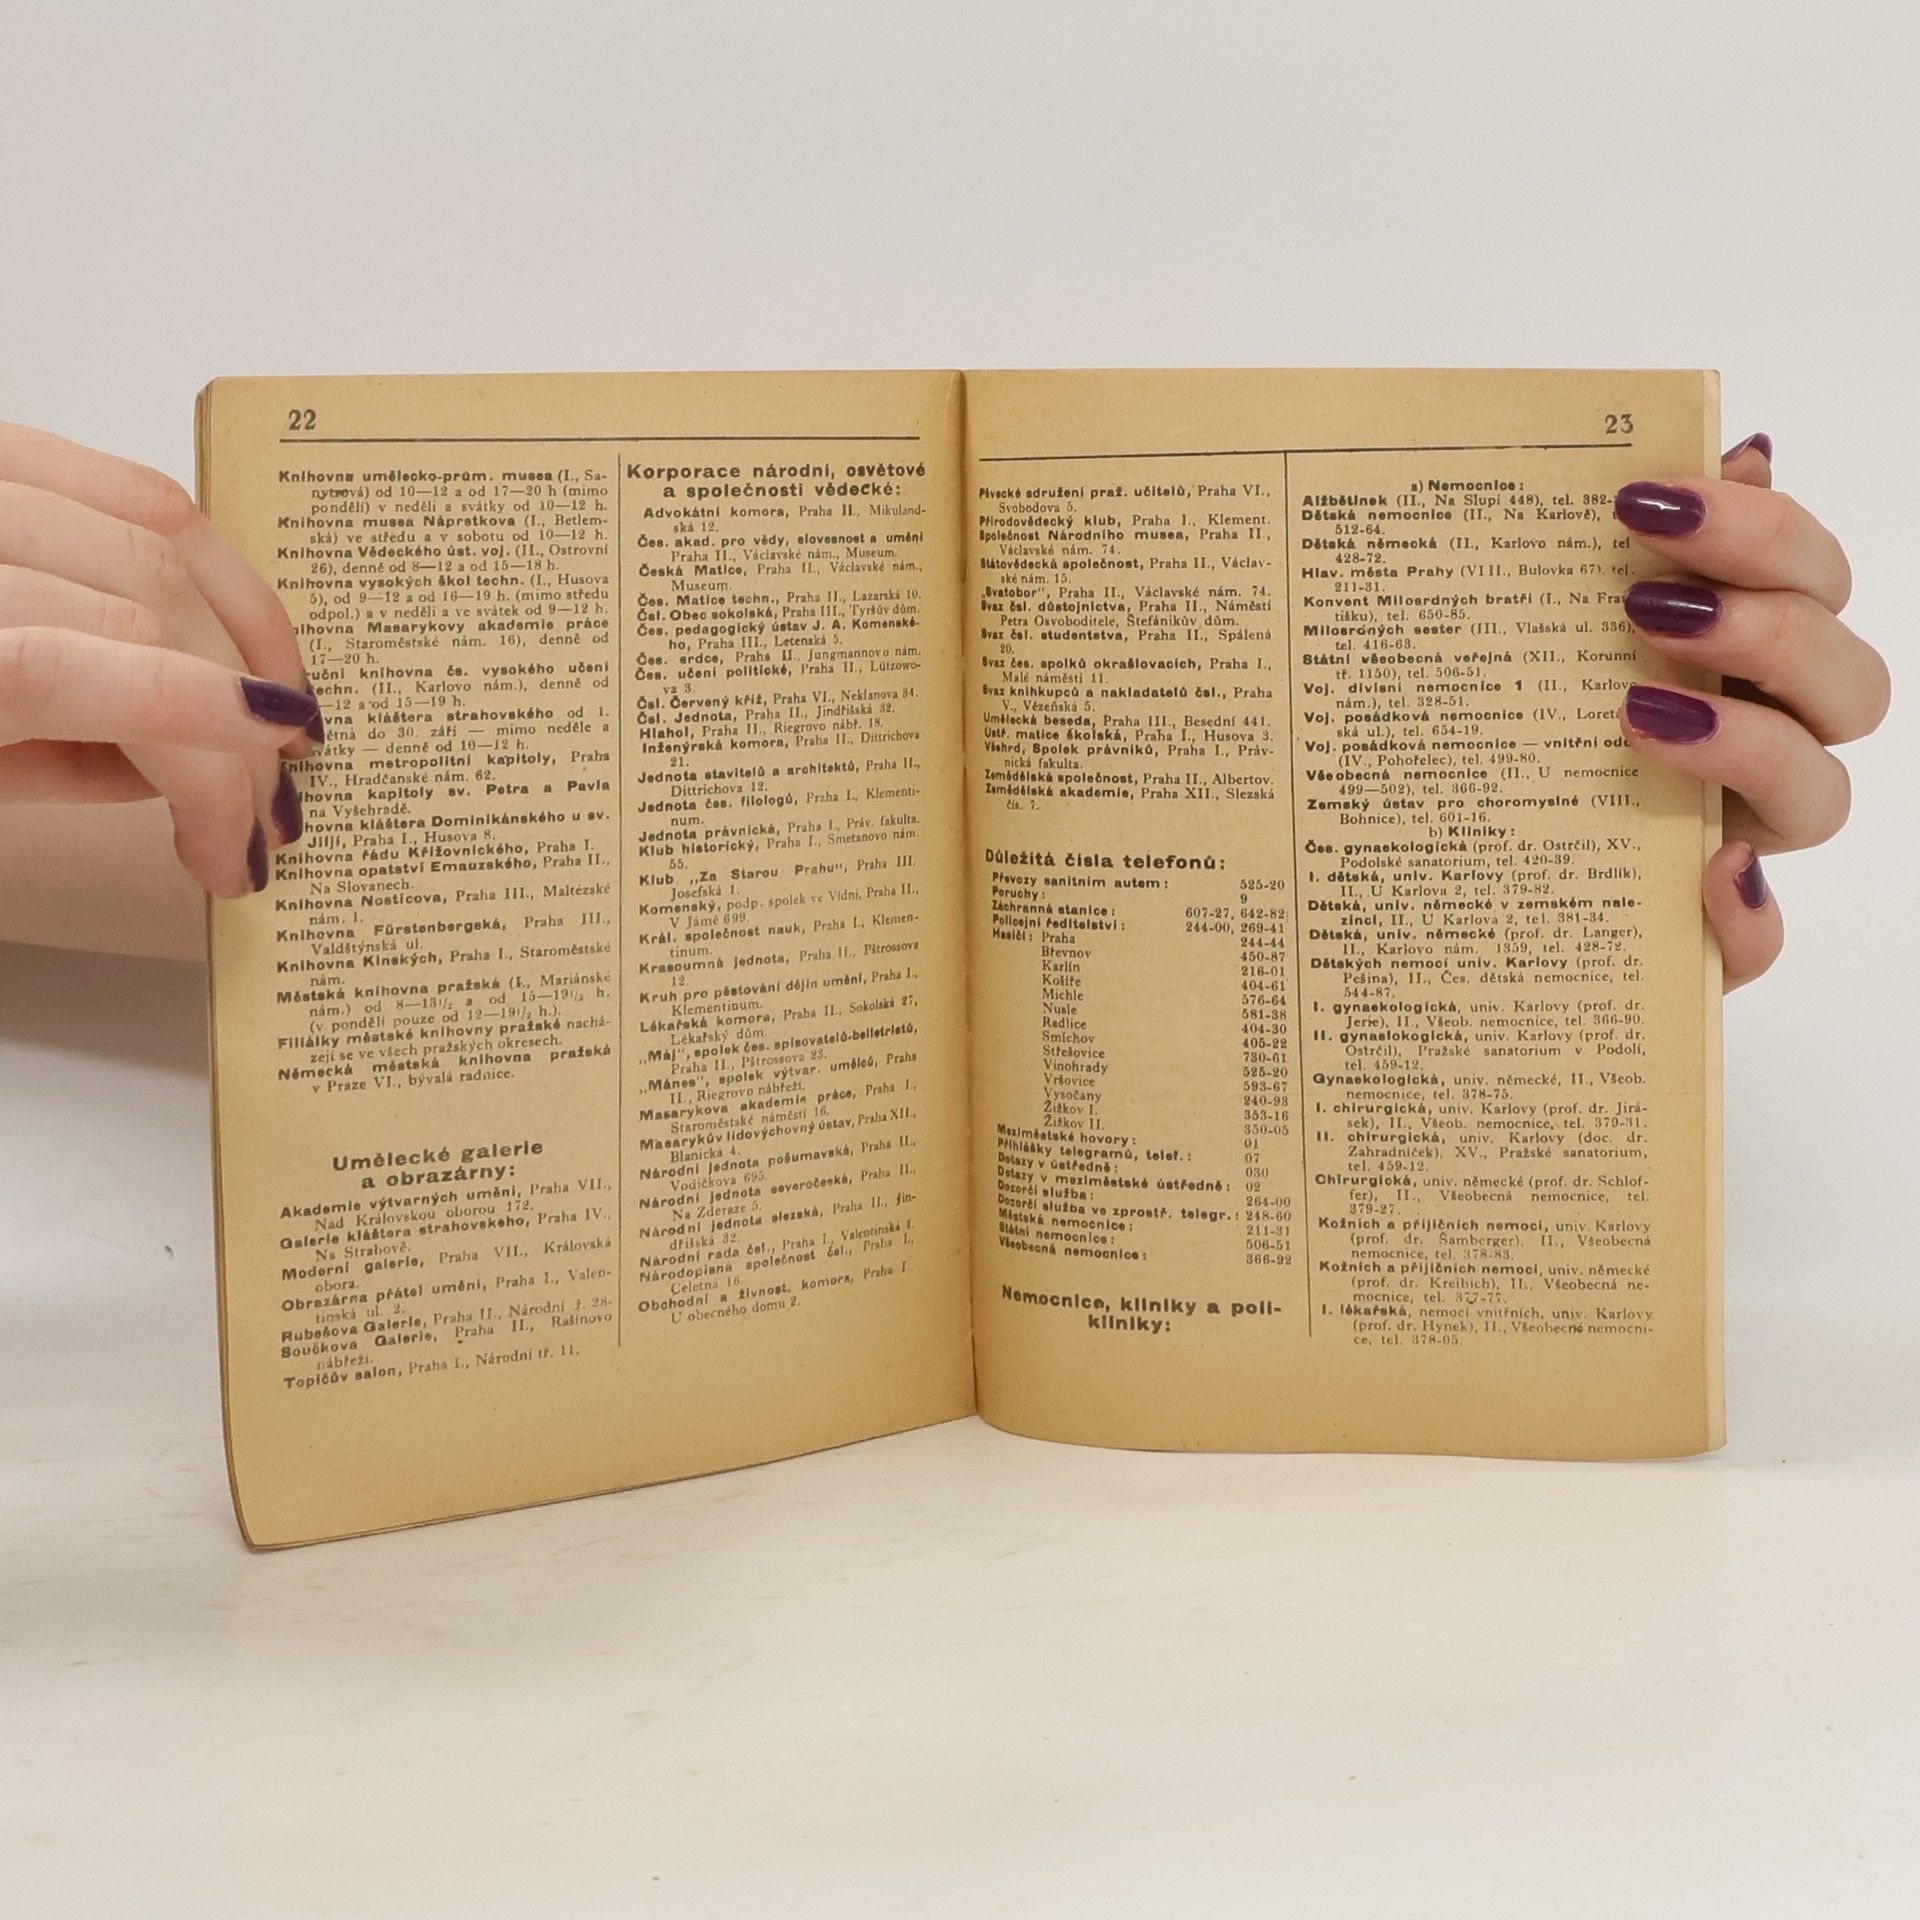 22
Knihovna umělecko-prům. musea (I., Sa-
nytrová) od 10—12 a od 17—20 h (mimo
pondělí) v neděli a svátky od 10—12 h.
Knihovna musea Náprstkova (I., Betlem-
ská) ve středu a v sobotu od 10—12 h.
Knihovna Vědeckého úst. voj. (II., Ostrovní
26), denně od 8—12 a od 15—18 h.
Knihovna vysokých škol techn. (I., Husova
5), od 9—12 a od 16—19 h. (mimo středu
odpol.) a v neděli a ve svátek od 9—12 h.
Masarykovy akademie práce
(I., Staroměstské nám. 16), denně od
17—20 h.
knihovna čs. vysokého učení
techn. (II., Karlovo nám.), denně od
—12 a od 15—19 h.
kláštera strahovského od 1.
do 30. září — mimo neděle a
— denně od 10—12 h.
Knihovna metropolitní kapitoly, Praha
IV., Hradčanské nám. 62.
kapitoly sv. Petra a Pavla
na Vyšehradě.
kláštera Dominikánského u sv.
Jiljí, Praha I., Husova 8.
Knihovna řádu Křižovnického, Praha I.
Knihovna opatství Emauzského, Praha II.,
Na Slovanech.
Knihovna Nosticova, Praha III., Maltézské
nám. 1.
Knihovna Fürstenbergská, Praha III.,
Valdštýnská ul.
Knihovna Kinských, Praha I., Staroměstské
nám.
Městská knihovna pražská (I., Mariánské
nám.) od 8—13½ a od 15—19½ h.
(v pondělí pouze od 12—19½ h.).
Filiálky městské knihovny pražské nachá-
zejí se ve všech pražských okresech.
Německá městská knihovna pražská
v Praze VI., bývalá radnice.
Umělecké galerie
a obrazárny:
Akademie výtvarných umění, Praha VII.,
Nad Královskou oborou 172.
Galerie kláštera strahovského, Praha IV.,
Na Strahově.
Moderní galerie, Praha VII., Královská
obora.
Obrazárna přátel umění, Praha I., Valen-
tinská ul. 2.
Rubešova Galerie, Praha II., Národní ř. 28.
Součkova Galerie, Praha II., Rašínovo
nábřeží.
Topičův salon, Praha I., Národní tř. 11.
Korporace národní, osvětové
a společnosti vědecké:
Advokátní komora, Praha II., Mikuland-
ská 12.
Čes. akad. pro vědy, slovesnost a umění
Praha II., Václavské nám., Museum.
Česká Matice, Praha II., Václavské nám.,
Museum.
Čes. Matice techn., Praha II., Lazarská 10.
Čsl. Obec sokolská, Praha III., Tyršův dům.
Čes. pedagogický ústav J. A. Komenské-
ho, Praha III., Letenská 5.
Čes. srdce, Praha II., Jungmannovo nám.
Čes. učení politické, Praha II., Lützowo-
va 3.
Čsl. Červený kříž, Praha VI., Neklanova 34.
Čsl. Jednota, Praha II., Jindřišská 32.
Hlahol, Praha II., Riegrovo nábř. 18.
Inženýrská komora, Praha II., Dittrichova
21.
Jednota stavitelů a architektů, Praha II.,
Dittrichova 12.
Jednota čes. filologů, Praha I., Klementi-
num.
Jednota právnická, Praha I., Práv. fakulta.
Klub historický, Praha I., Smetanovo nám.
55.
Klub „Za Starou Prahu“, Praha III.
Josefská 1.
Komenský, podp. spolek ve Vídni, Praha II.,
V Jámě 699.
Král. společnost nauk, Praha I., Klemen-
tinum.
Krasoumná jednota, Praha II., Pštrossova
12.
Kruh pro pěstování dějin umění, Praha I.,
Klementinum.
Lékařská komora, Praha II., Sokolská 27,
Lékařský dům.
„Máj“, spolek čes. spisovatelů-beletristů,
Praha II., Pštrossova 23.
„Mánes“, spolek výtvar. umělců, Praha
II., Riegrovo nábřeží.
Masarykova akademie práce, Praha I.,
Staroměstské náměstí 16.
Masarykův lidovýchovný ústav, Praha XII.,
Blanická 4.
Národní jednota pošumavská, Praha II.,
Vodičkova 695.
Národní jednota severočeská, Praha II.,
Na Zderaze 5.
Národní jednota slezská, Praha II., Jin-
dřišská 32.
Národní rada čsl., Praha I., Valentinská 1.
Národopisná společnost čsl., Praha I.,
Celetná 16.
Obchodní a živnost. komora, Praha I.
U obecného domu 2.
23
Pěvecké sdružení praž. učitelů, Praha VI.,
Svobodova 5.
Přírodovědecký klub, Praha I., Klement.
Společnost Národního musea, Praha II.,
Václavské nám. 74.
Státovědecká společnost, Praha II., Václav-
ské nám. 15.
„Svatobor“, Praha II., Václavské nám. 74.
Svaz čsl. důstojnictva, Praha II., Náměstí
Petra Osvoboditele, Štefánikův dům.
Svaz čsl. studentstva, Praha II., Spálená
20.
Svaz čes. spolků okrašlovacích, Praha I.,
Malé náměstí 11.
Svaz knihkupců a nakladatelů čsl., Praha
V., Vězeňská 5.
Umělecká beseda, Praha III., Besední 441.
Ústř. matice školská, Praha I., Husova 3.
Všehrd, Spolek právníků, Praha I., Práv-
nická fakulta.
Zemědělská společnost, Praha II., Albertov.
Zemědělská akademie, Praha XII., Slezská
čís. 7.
Důležitá čísla telefonů:
Převozy sanitním autem: 525-20
Poruchy: 9
Záchranná stanice: 607-27, 642-82
Policejní ředitelství: 244-00, 269-41
Hasiči: Praha 244-44
Břevnov 450-87
Karlín 216-01
Košíře 404-61
Michle 576-64
Nusle 581-38
Radlice 404-30
Smíchov 405-22
Střešovice 730-61
Vinohrady 525-20
Vršovice 593-67
Vysočany 240-93
Žižkov I. 353-16
Žižkov II. 350-05
Meziměstské hovory: 01
Přihlášky telegramů, telef.: 07
Dotazy v ústředně: 030
Dotazy v meziměstské ústředně: 02
Dozorčí služba: 264-00
Dozorčí služba ve zprostř. telegr.: 248-60
Městská nemocnice: 211-31
Státní nemocnice: 506-51
Všeobecná nemocnice: 366-92
Nemocnice, kliniky a poli-
kliniky:
a) Nemocnice:
Alžbětinek (II., Na Slupi 448), tel. 382-
Dětská nemocnice (II., Na Karlově),
512-64.
Dětská německá (II., Karlovo nám.), tel
428-72.
Hlav. města Prahy (VIII., Bulovka 67). tel.
211-31.
Konvent Milosrdných bratří (I., Na Fran
tišku), tel. 650-85.
Milosrdných sester (III., Vlašská ul. 336),
tel. 416-63.
Státní všeobecná veřejná (XII., Korunní
tř. 1150), tel. 506-51.
Voj. divisní nemocnice 1 (II., Karlovo
nám.), tel. 328-51.
Voj. posádková nemocnice (IV., Loretán
ská ul.), tel. 654-19.
Voj. posádková nemocnice — vnitřní odd.
(IV., Pohořelec), tel. 499-80.
Všeobecná nemocnice (II., U nemocnice
499—502), tel. 366-92.
Zemský ústav pro choromyslné (VIII.,
Bohnice), tel. 601-16.
b) Kliniky:
Čes. gynaekologická (prof. dr. Ostrčil), XV.,
Podolské sanatorium, tel. 420-39.
I. dětská, univ. Karlovy (prof. dr. Brdlík),
II., U Karlova 2, tel. 379-82.
Dětská, univ. německé v zemském nale-
zinci, II., U Karlova 2, tel. 381-34.
Dětská, univ. německé (prof. dr. Langer),
II., Karlovo nám. 1359, tel. 428-72.
Dětských nemocí univ. Karlovy (prof. dr.
Pešina), II., Čes. dětská nemocnice, tel.
544-87.
I. gynaekologická, univ. Karlovy (prof. dr.
Jerie), II., Všeob. nemocnice, tel. 366-90.
II. gynaelokogická, univ. Karlovy (prof. dr.
Ostrčil), Pražské sanatorium v Podolí,
tel. 459-12.
Gynaekologická, univ. německé, II., Všeob.
nemocnice, tel. 378-75.
I. chirurgická, univ. Karlovy (prof. dr. Jirá-
sek), II., Všeob. nemocnice, tel. 379-31.
II. chirurgická, univ. Karlovy (doc. dr.
Zahradníček), XV., Pražské sanatorium,
tel. 459-12.
Chirurgická, univ. německé (prof. dr. Schlof-
fer), II., Všeobecná nemocnice, tel.
379-27.
Kožních a příjičních nemocí, univ. Karlovy
(prof. dr. Šamberger), II., Všeobecná
nemocnice, tel. 378-83.
Kožních a příjičních nemocí, univ. německé
(prof. dr. Kreibich), II., Všeobecná ne-
mocnice, tel. 377-77.
I. lékařská, nemocí vnitřních, univ. Karlovy
(prof. dr. Hynek), II., Všeobecná nemocni-
ce, tel. 378-05.